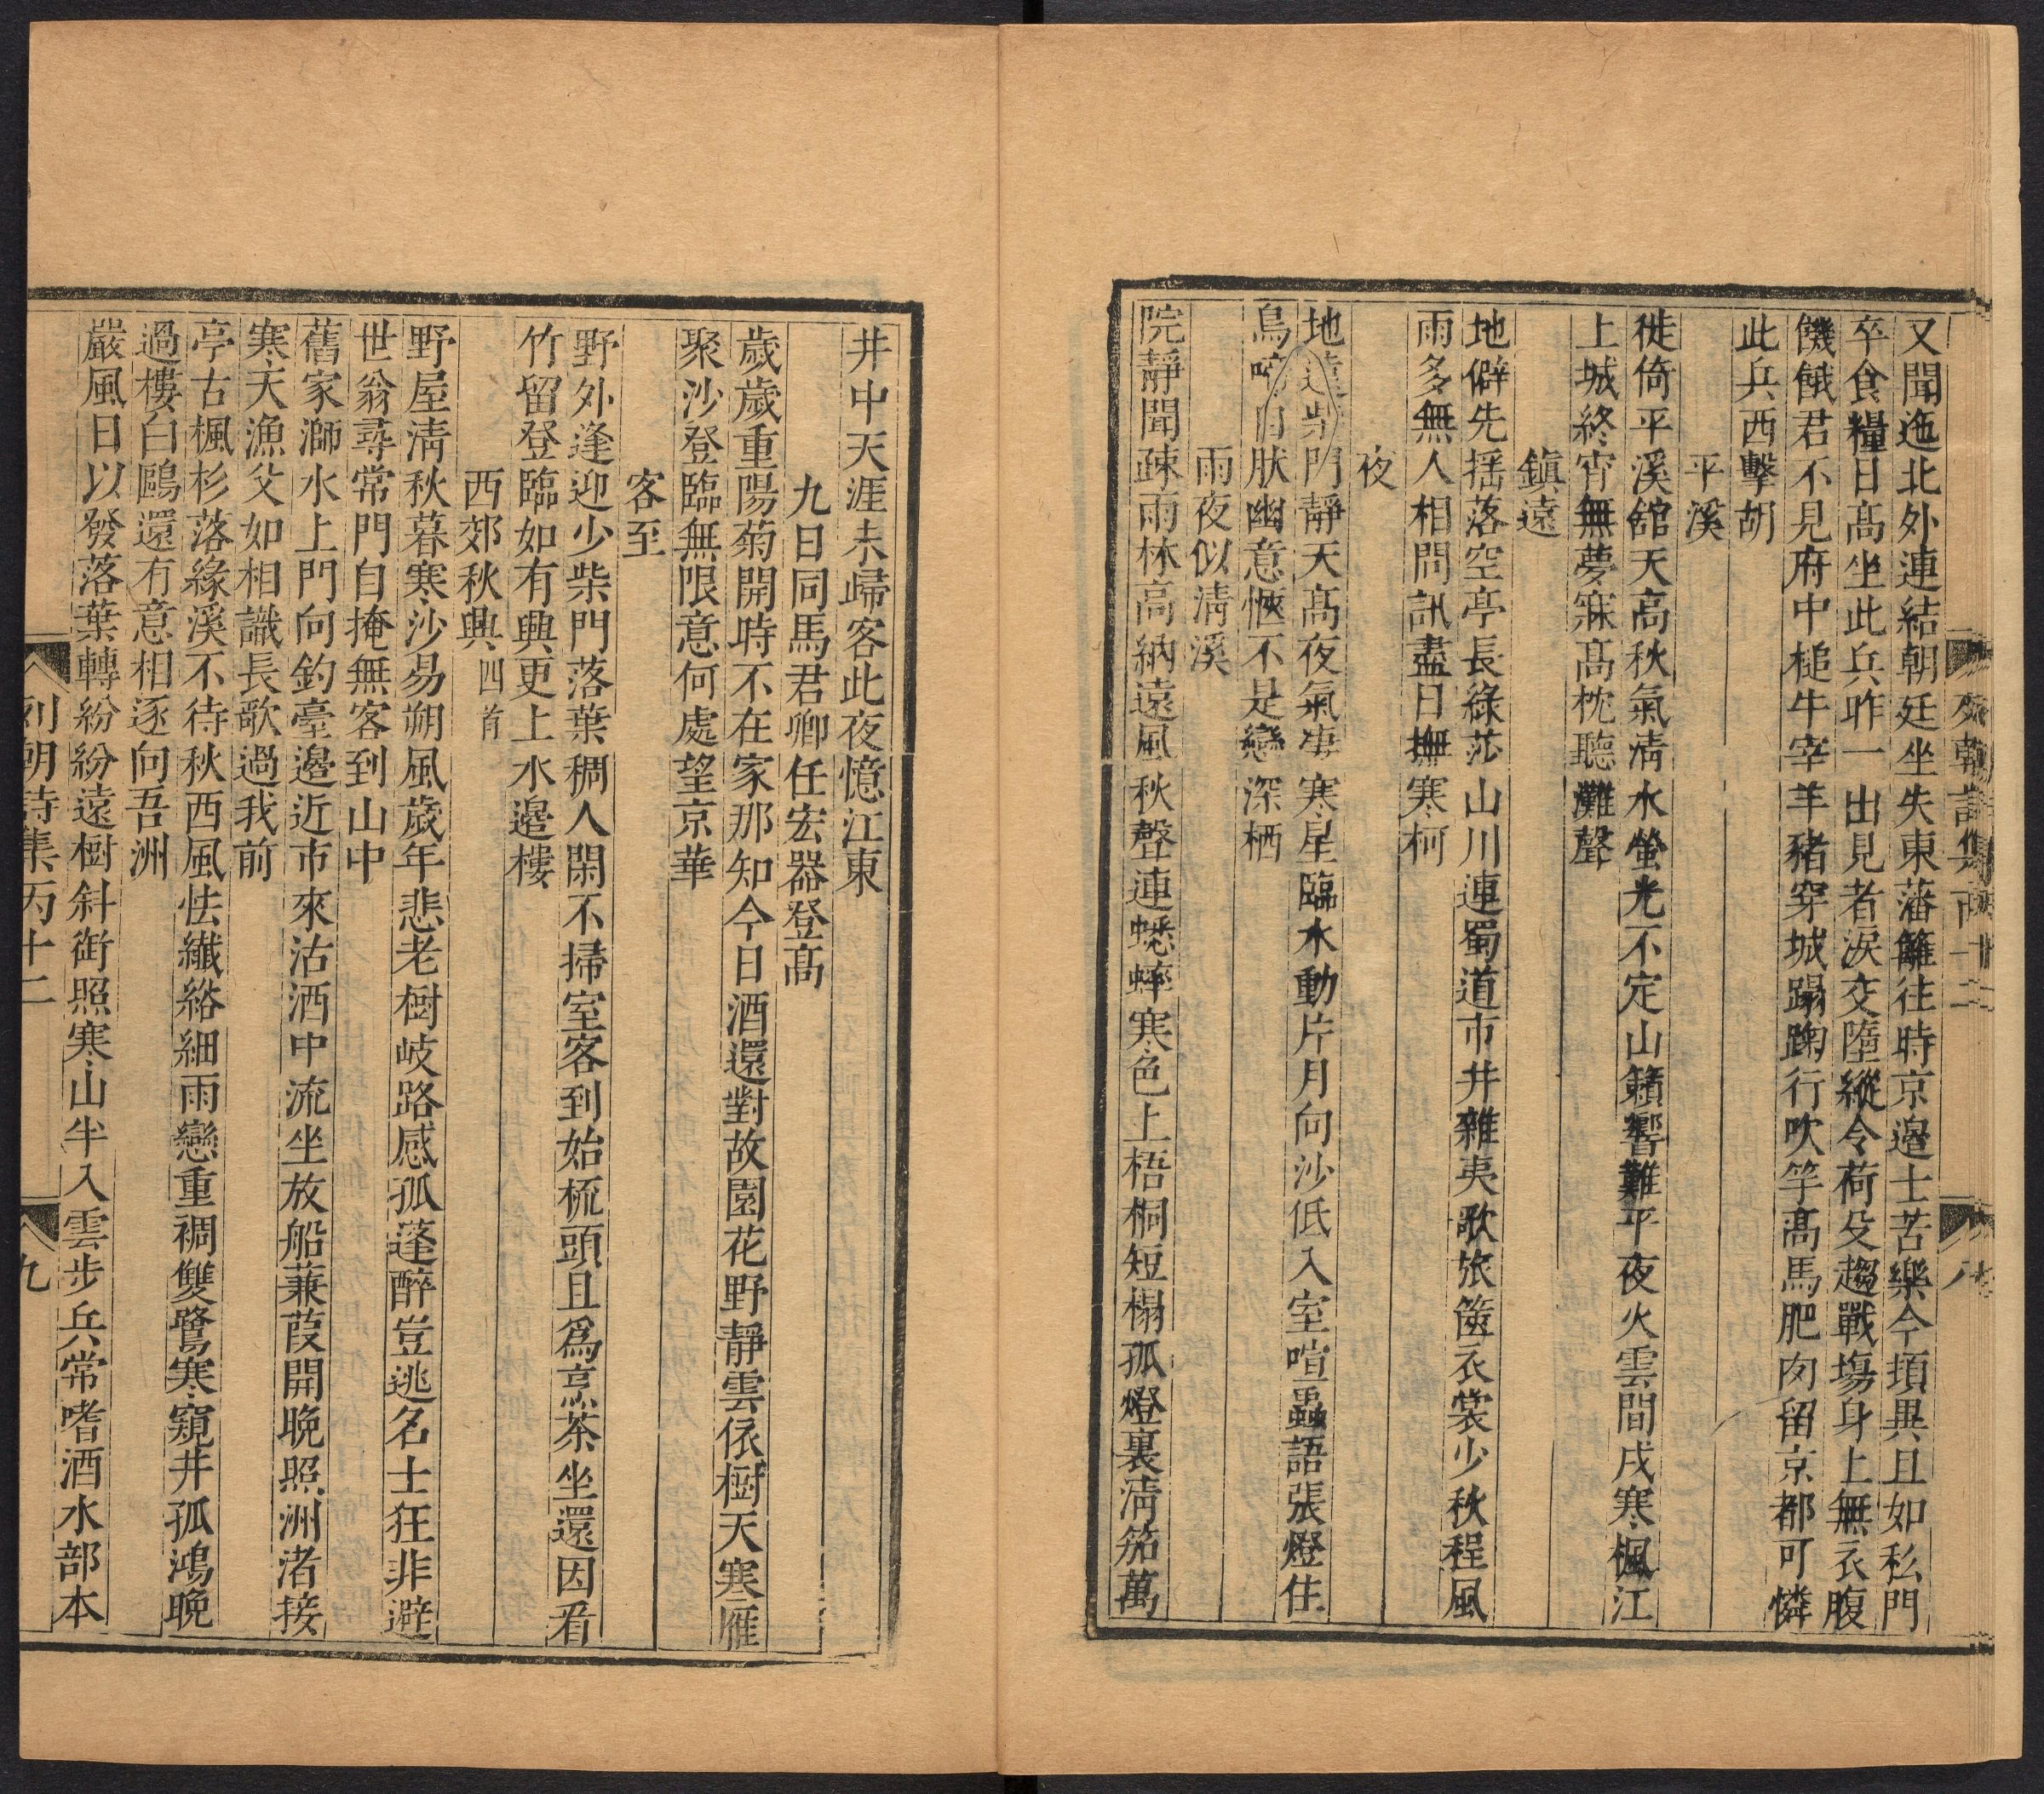 又聞迤北外連結朝廷坐失東藩籬往時京邊士苦樂今頃異且如私門
卒食糧日高坐此兵昨一出見者淚交墮縱令荷殳趨戰塲身上無衣腹
饑餓君不見府中槌牛宰羊豬穿城蹋踘行吹竽高馬肥肉留京都可憐
此兵西擊胡
平溪
徙倚平溪舘天高秋氣清水螢光不定山籟響難平夜火雲間戍寒楓江
上城終宵無夢寐高枕聽灘聲
鎮遠
地僻先揺落空亭長綠莎山川連蜀道市井雜夷歌旅篋衣裳少秋程風
雨多無人相問訊盡日撫寒柯
夜
地遠柴門靜天髙夜氣凄寒星臨水動片月向沙低入室喧蟲語張燈住
鳥啼自肰幽意愜不是戀深栖
雨夜似清溪
院靜聞疎雨林高納遠風秋聲連蟋蟀寒色上梧桐短榻孤燈裏清笳萬
井中天涯未歸客此夜憶江東
九日同馬君卿任宏器登髙
歲歲重陽菊開時不在家那知今日酒還對故園花野靜雲依樹天寒雁
聚沙登臨無限意何處望京華
客至
野外逢迎少柴門落葉稠人閑不掃室客到始梳頭且爲烹茶坐還因看
竹留登臨如有興更上水邊樓
西郊秋興四首
野屋清秋暮寒沙易朔風歲年悲老樹岐路感孤蓬醉豈逃名士狂非避
世翁尋常門自掩無客到山中
舊家溮水上門向釣臺邊近市來沽酒中流坐放船蒹葭開晩照洲渚接
寒天漁父如相識長歌過我前
亭古楓杉落緣溪不待秋西風怯纖綌細雨戀重裯雙鷺寒窺井孤鴻晩
過樓白鷗還有意相逐向吾洲
嚴風日以發落葉轉紛紛遠樹斜銜照寒山半入雲步兵常嗜酒水部本
列朝詩集丙十二
九